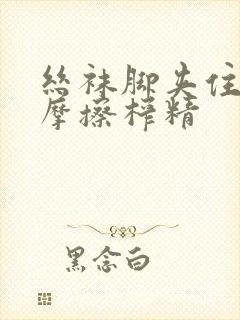 丝袜脚夹住
摩擦榨精
黑念白